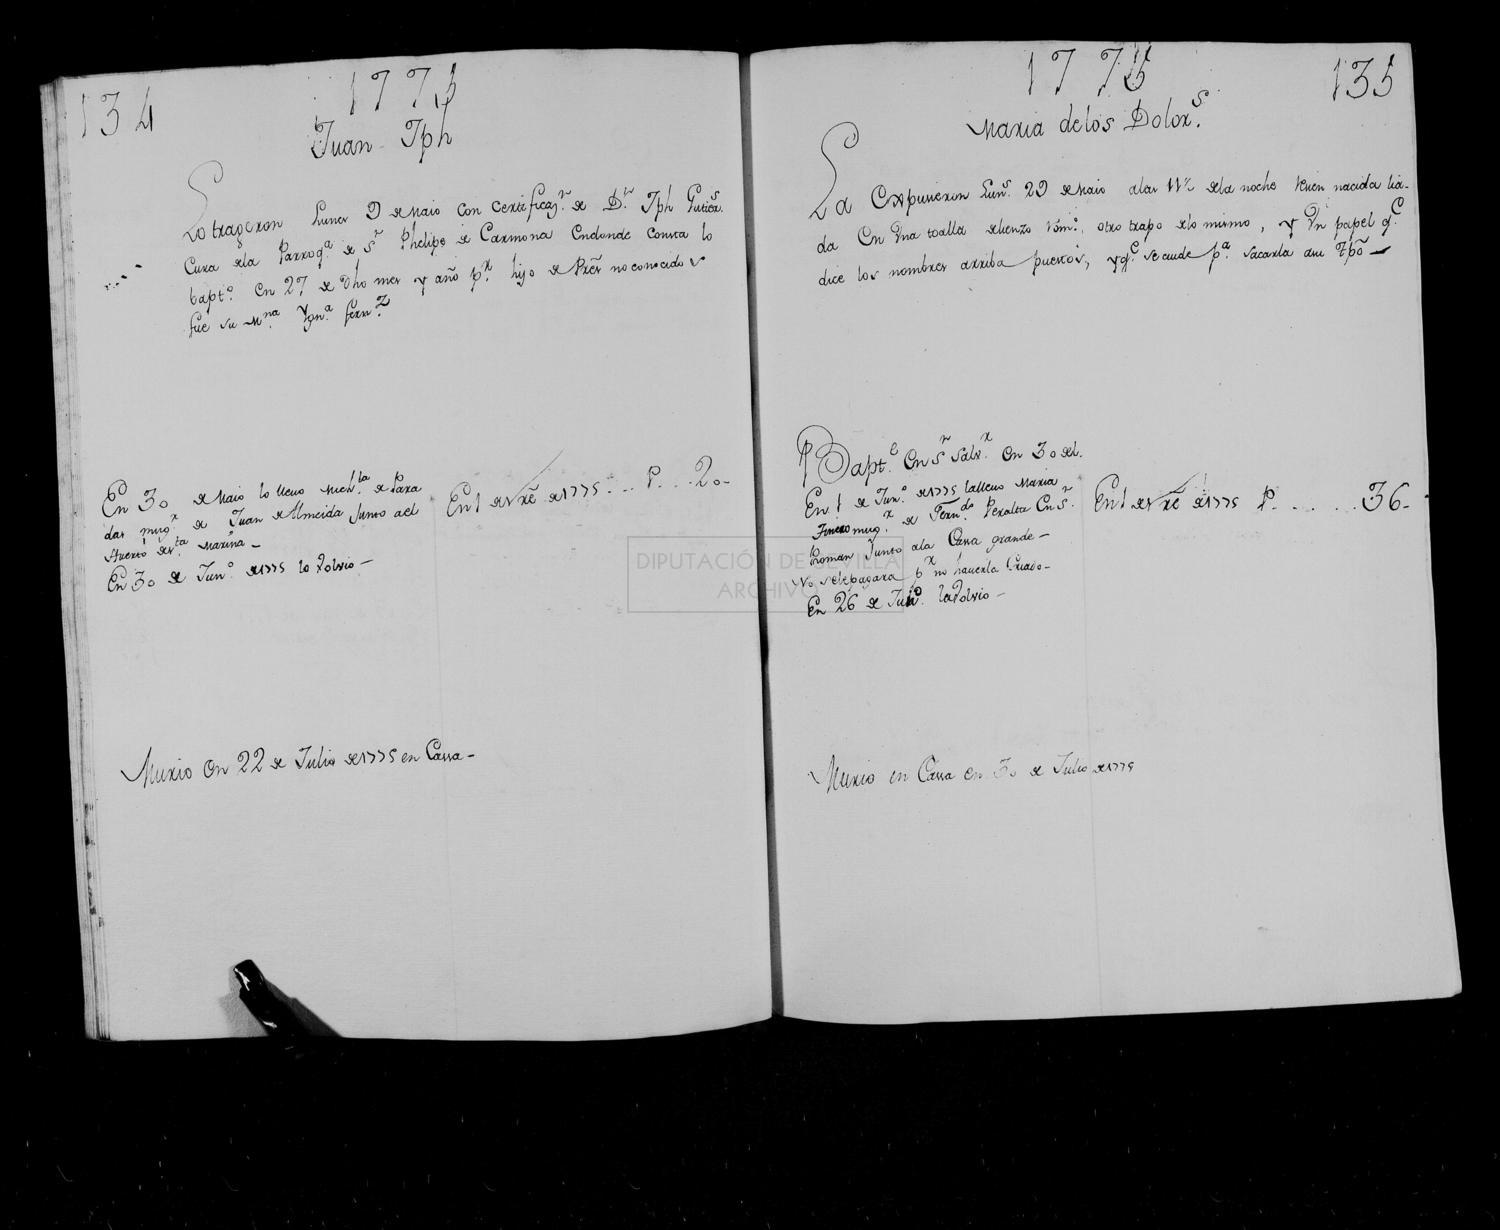 134
1775
Juan Jph
Lo trageron Lunes 29 de Maio con certificaz.n de D.n Jph Gutier.s
Cura dela Parroq.a de S.n Phelipe de Carmona Endonde consta lo
bapt.o en 27 de Dho mes y año p.r hijo de Pres no conocidos
fue su M.na Ygn.a Fern.z
En 30 de Maio lo llevo de Para
das mug.r de Juan de Almeida Junto ael
Huerto de s.ta Marina
En 30 de Jun.o de 1775 lo Volvio
En 1 de de 1775 ... P. ... 20
Murio en 22 de Julio de 1775 en Cassa
1775
135
Maria delos Dolor.s
La Expusieron Lun.s 29 de Maio alas 11 dela noche Recien nacida lia-
da En Vna toalla de lienzo otro trapo delo mismo, y Vn papel q.e
dice los nombres arriba puestos, y q.e se acude p.a sacarla a su tpõ
Bapt.e En S.n Salv.r en 30 del.
En 1 de Jun.o de 1775 la llevo Maria
mug.r de Fern.do Peralta En S.n
Roman Junto ala Cassa grande
No se le pagara p.r no haverla Criado
En 26 de Jun.o la Volvio
En 1 de de 1775 P. ...... 36
Murio en Cassa en 30 de Julio de 1775
DIPUTACIÓN DE SEVILLA
ARCHIVO